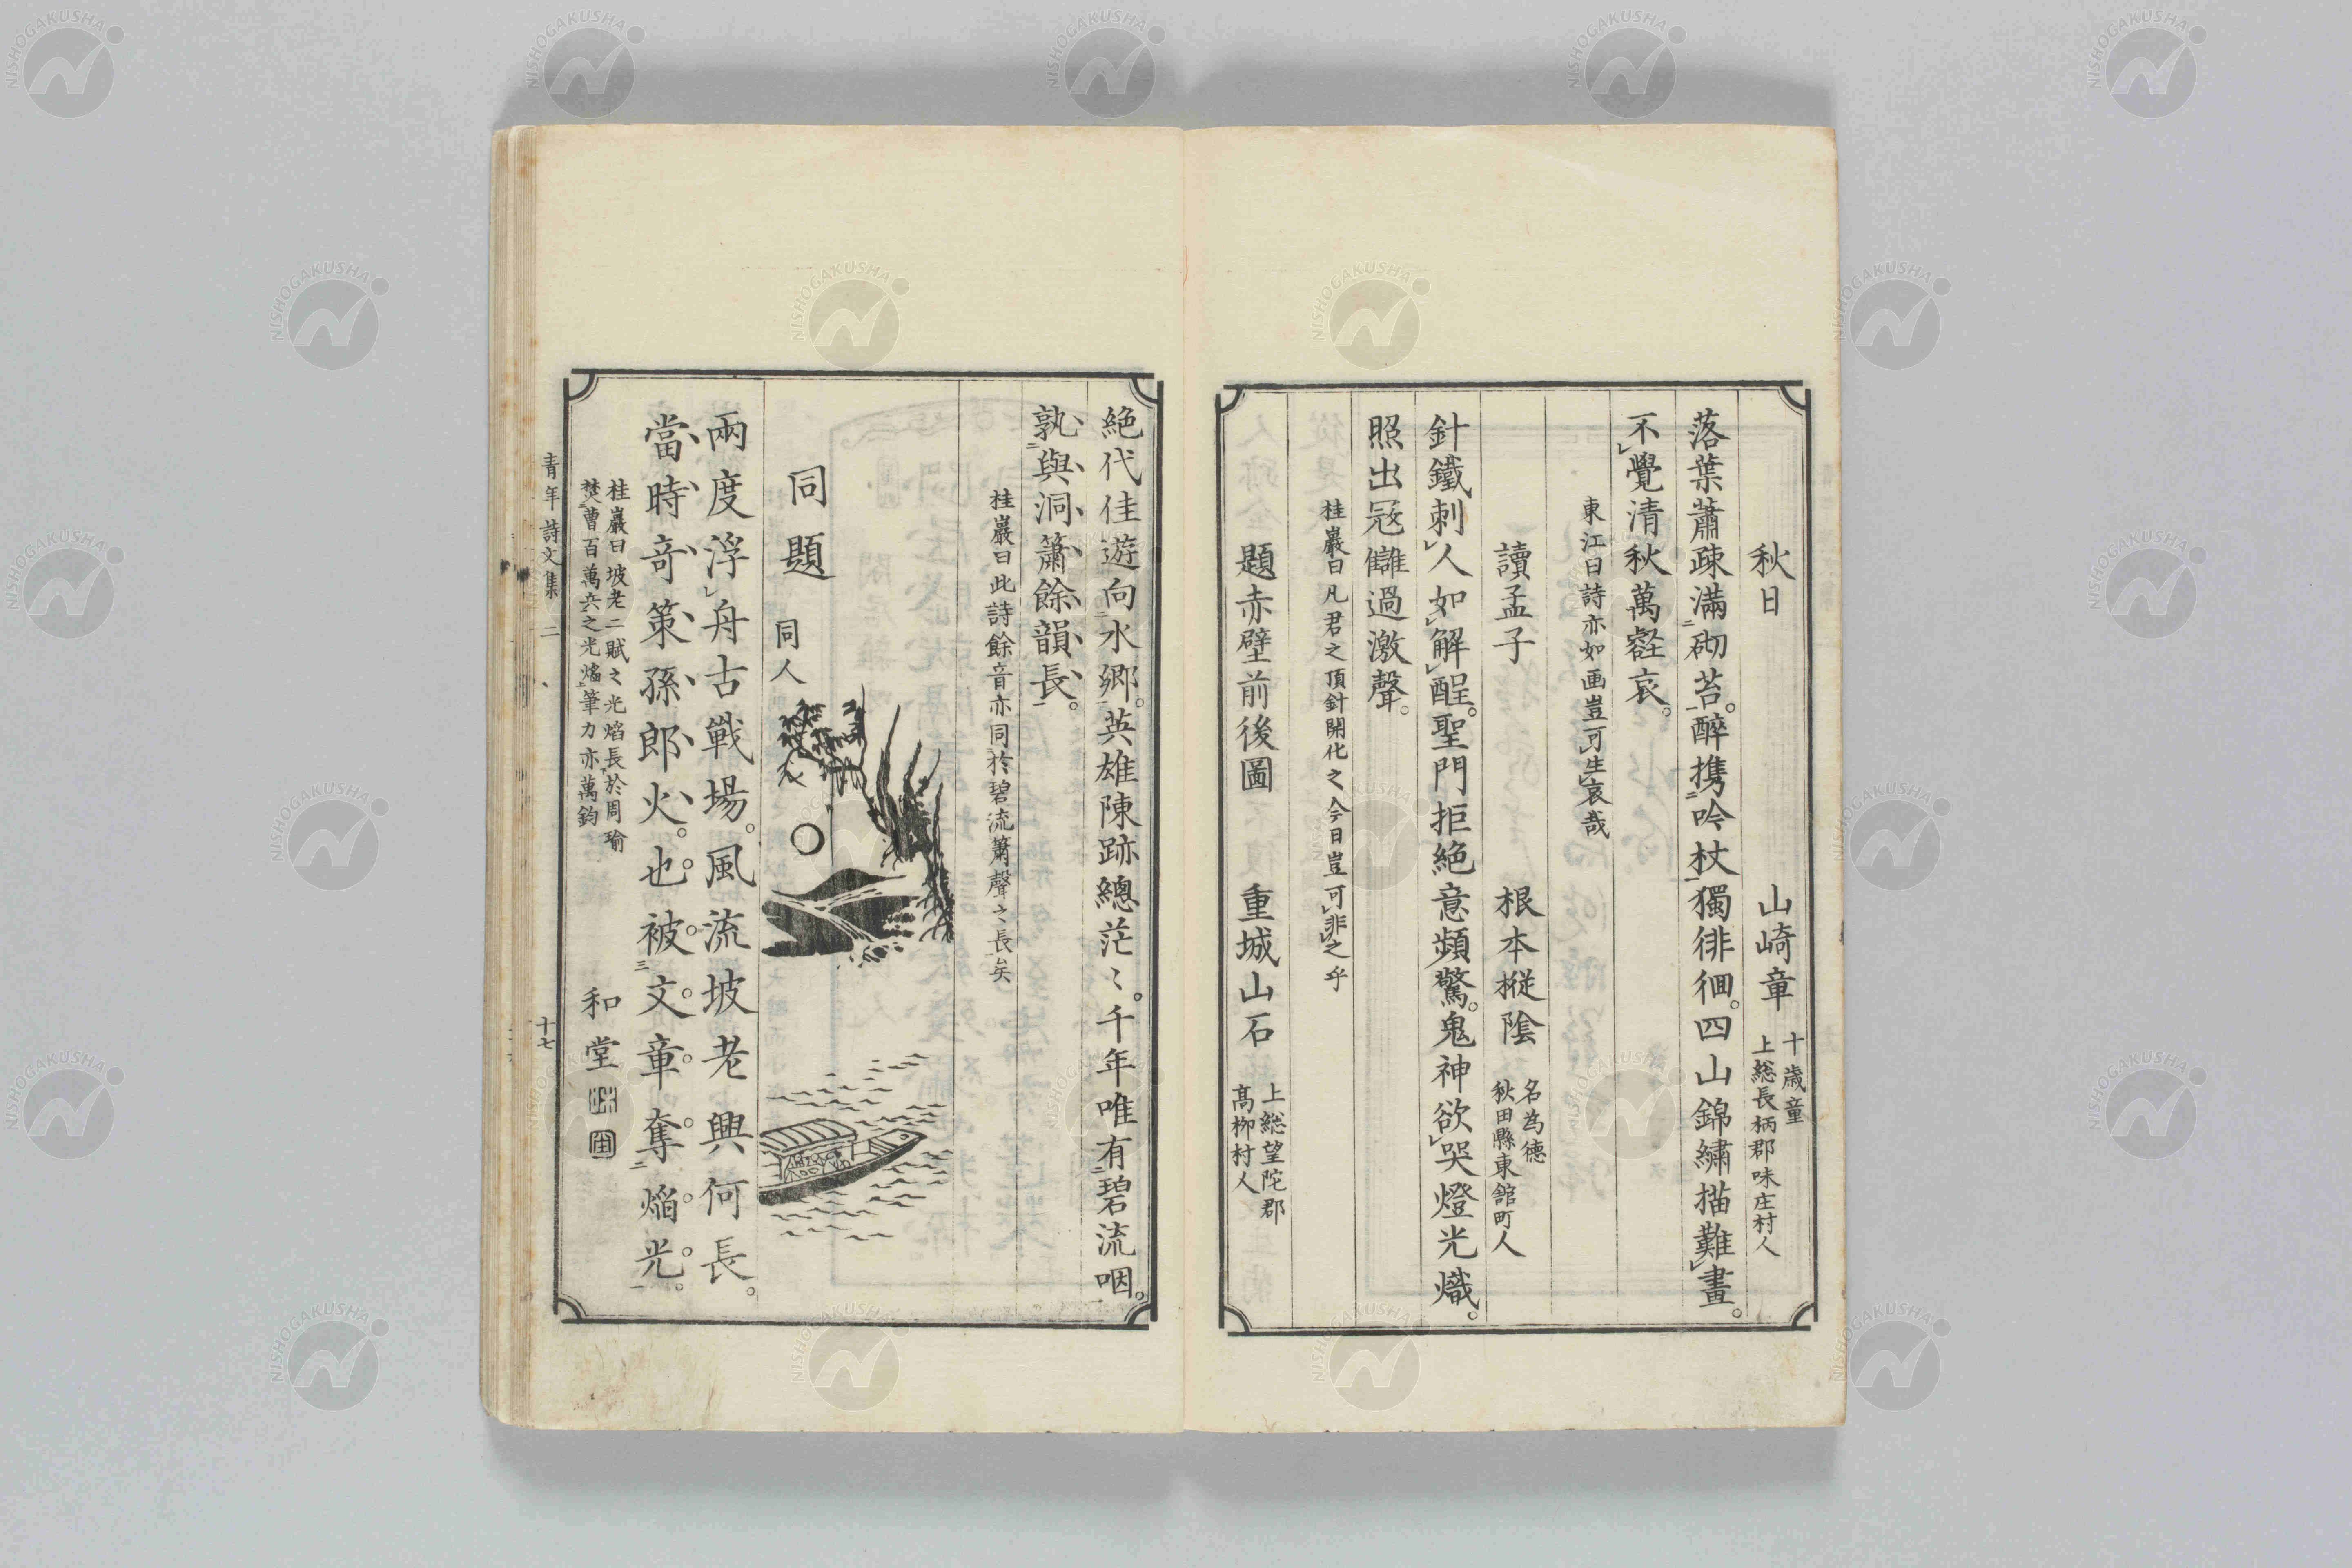 秋日
山崎章
十歳童
上総長柄郡味庄村人
落葉蕭疎滿砌苔醉携吟杖獨徘徊四山錦繡描難畫
不覺清秋萬壑哀
東江曰詩亦如画豈可生哀哉
讀孟子
根本樅陰
名為徳
秋田縣東舘町人
針鐵刺人如解酲聖門拒絶意頻驚鬼神欲哭燈光熾
照出冦讎過激聲
桂巖曰凡君之頂針開化之今日豈可非之乎
題赤壁前後圖
重城山石
上総望陀郡
髙栁村人
絶代佳遊向水郷英雄陳跡總茫〻千年唯有碧流咽
孰與洞簫餘韻長
桂巖曰此詩餘音亦同於碧流簫聲之長矣
同題
同人
兩度浮舟古戰場風流坡老興何長
當時竒策孫郎火也被文章奪焔光
桂巖曰坡老二賦之光焔長於周瑜
焚曹百萬兵之光焔筆力亦萬鈞
和堂
青年詩文集 二
十七
NISHOGAKUSHA